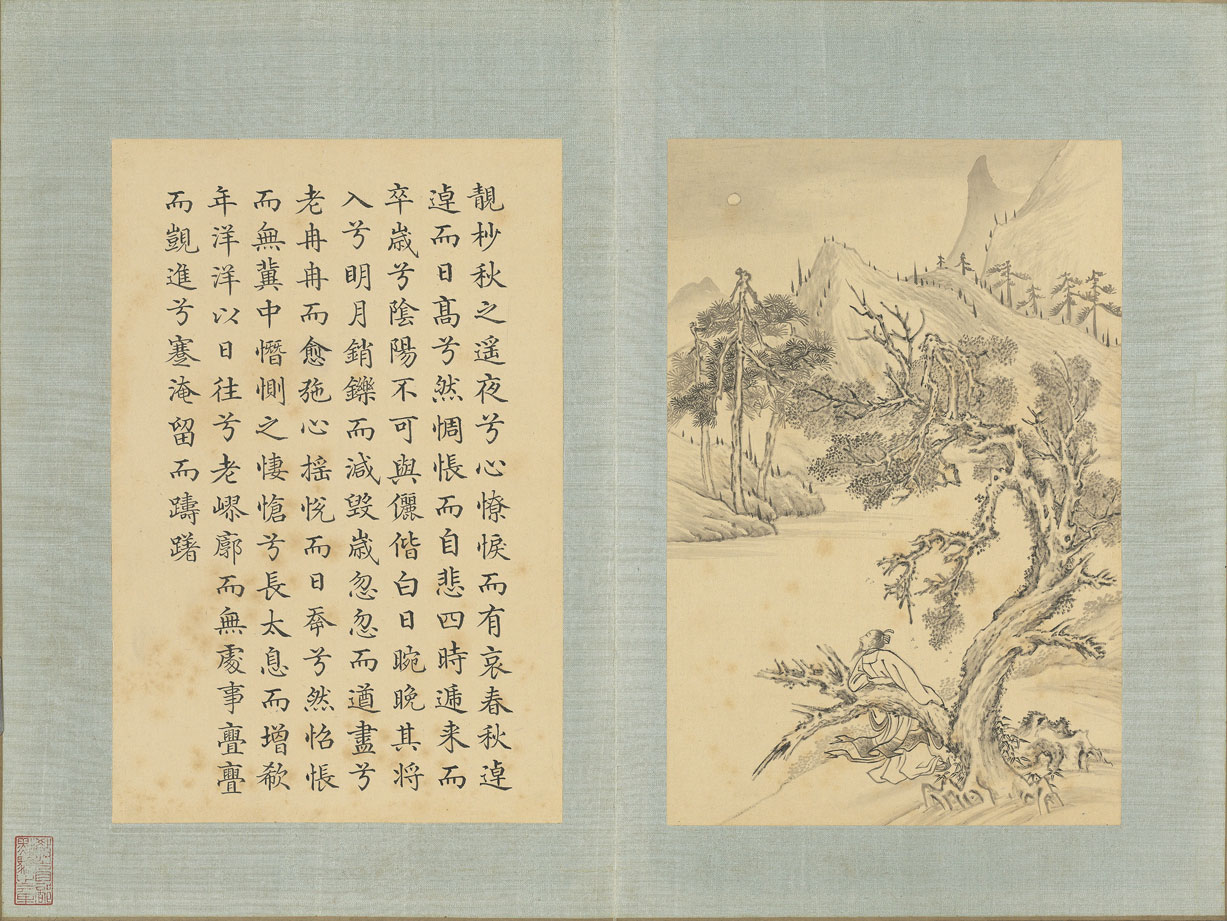 靚杪秋之遥夜兮心憭悷而有哀春秋逴
逴而日髙兮然惆悵而自悲四時遞来而
卒歳兮陰陽不可與儷偕白日晼晚其将
入兮明月銷鑠而減毁歳忽忽而遒盡兮
老冉冉而愈㢮心揺悅而日幸兮然怊悵
而無冀中憯惻之悽愴兮長太息而增欷
年洋洋以日往兮老嵺廓而無處事亹亹
而覬進兮蹇淹留而躊躇